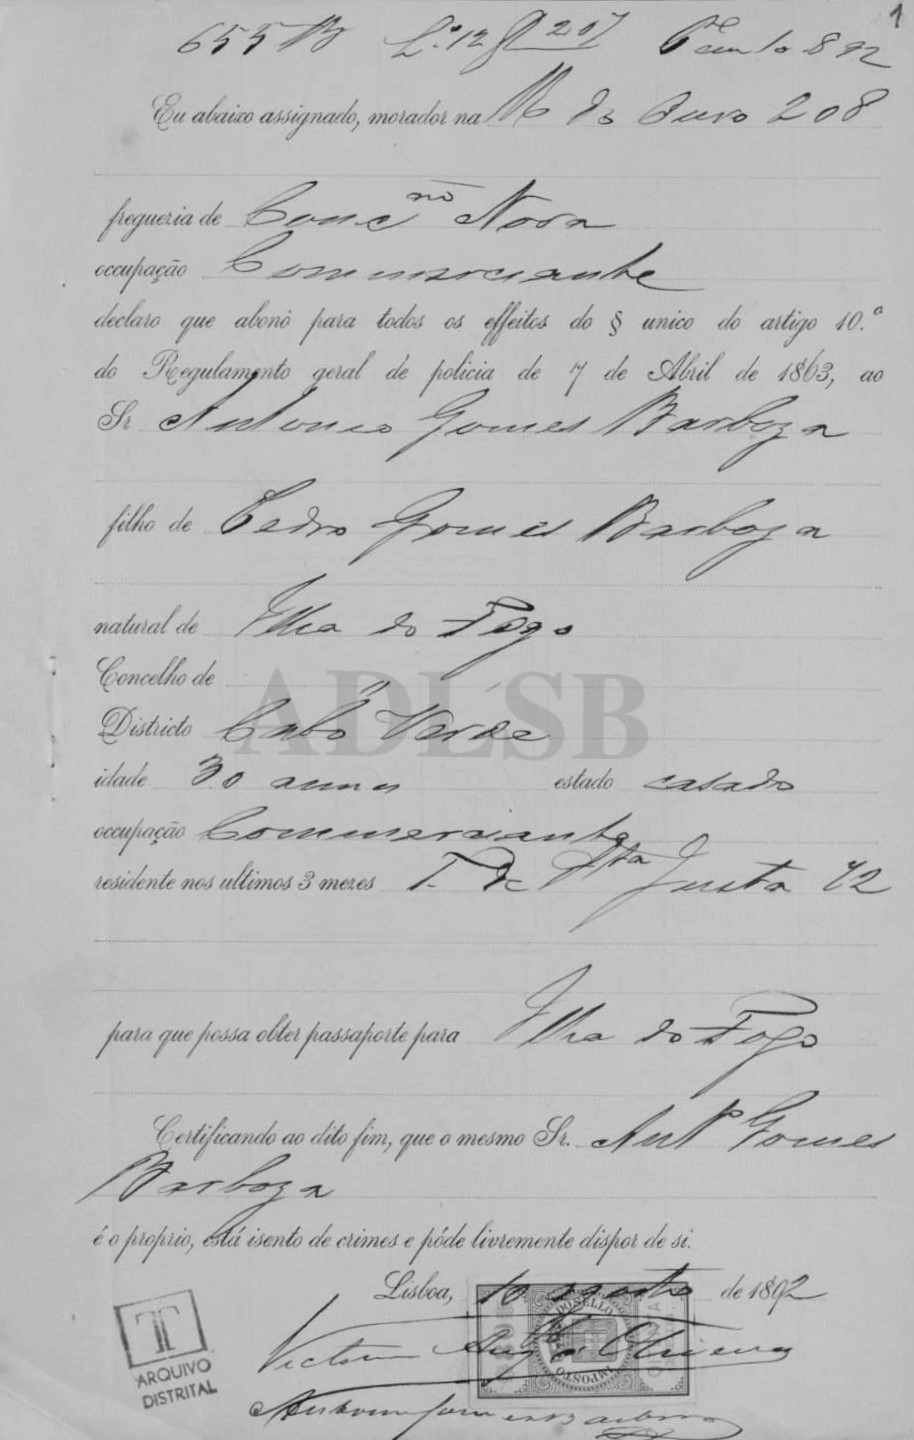 1
655 B L.º 12 fl 207
Eu abaixo assignado, morador na R do Ouro 208
freguezia de Conc.ão Nova
occupação Commerciante
declaro que abono para todos os effeitos do § unico do artigo 10.º
do Regulamento geral de policia de 7 de Abril de 1863, ao
Sr. Antonio Gomes Barboza
filho de Pedro Gomes Barboza
natural de Ilha do Fogo
Concelho de "
Districto Cabo Verde
idade 30 annos estado casado
occupação Commerciante
residente nos ultimos 3 mezes T. de Sta Justa 72
para que possa obter passaporte para Ilha do Fogo
Certificando ao dito fim, que o mesmo Sr. Antº Gomes
Barboza
é o proprio, está isento de crimes e póde livremente dispor de si.
Lisboa, 10 agosto de 1892
IMPOSTO DO SELLO
Victor
Antonio Gomes Barboza
T
ARQUIVO
DISTRITAL
ADLSB